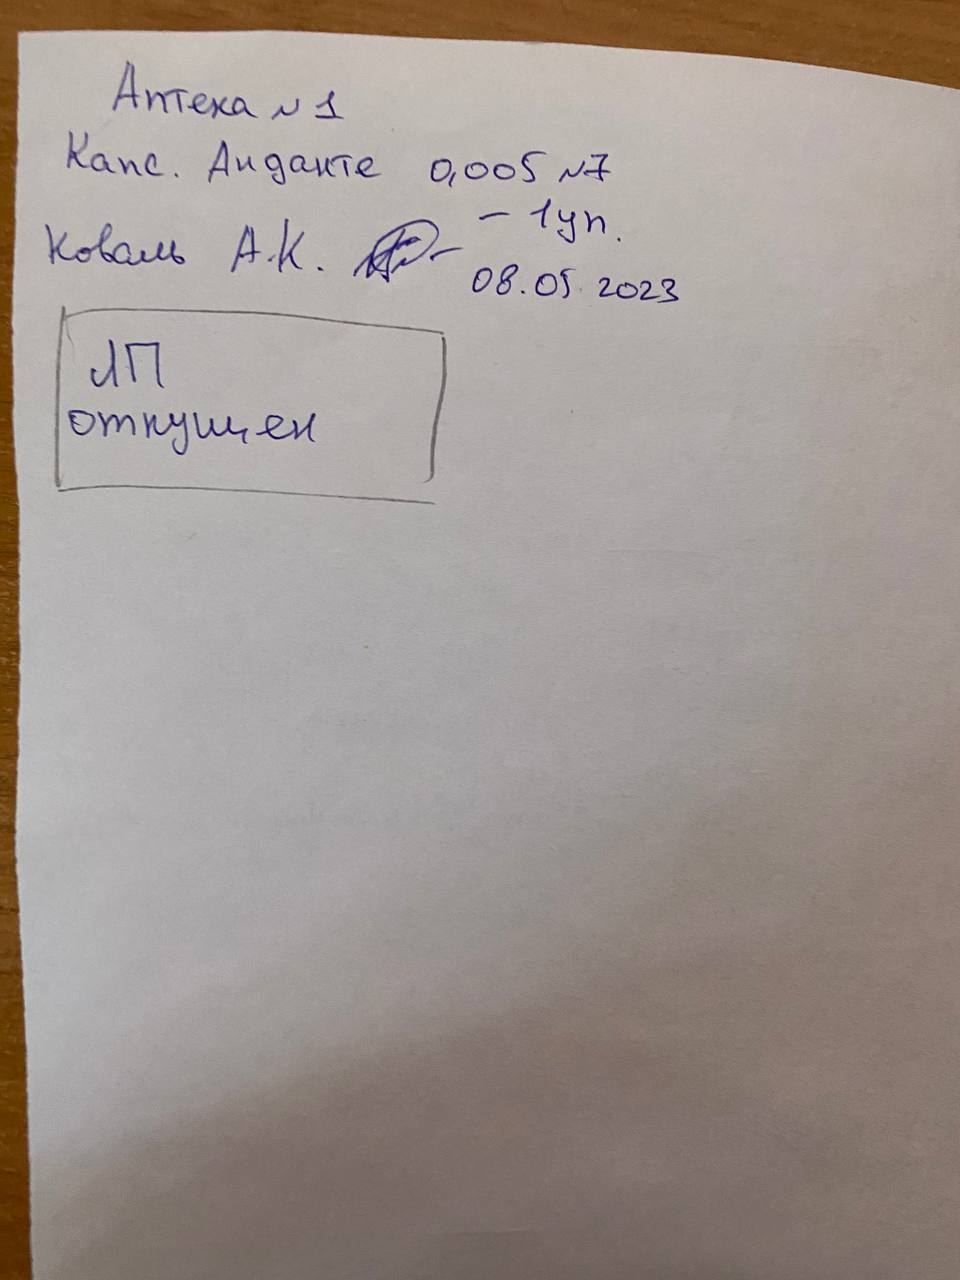 Аптека №1
Капс. Анданте 0,005 №7
– 1уп.
Коваль А.К.
08.05.2023
ЛП
отпущен